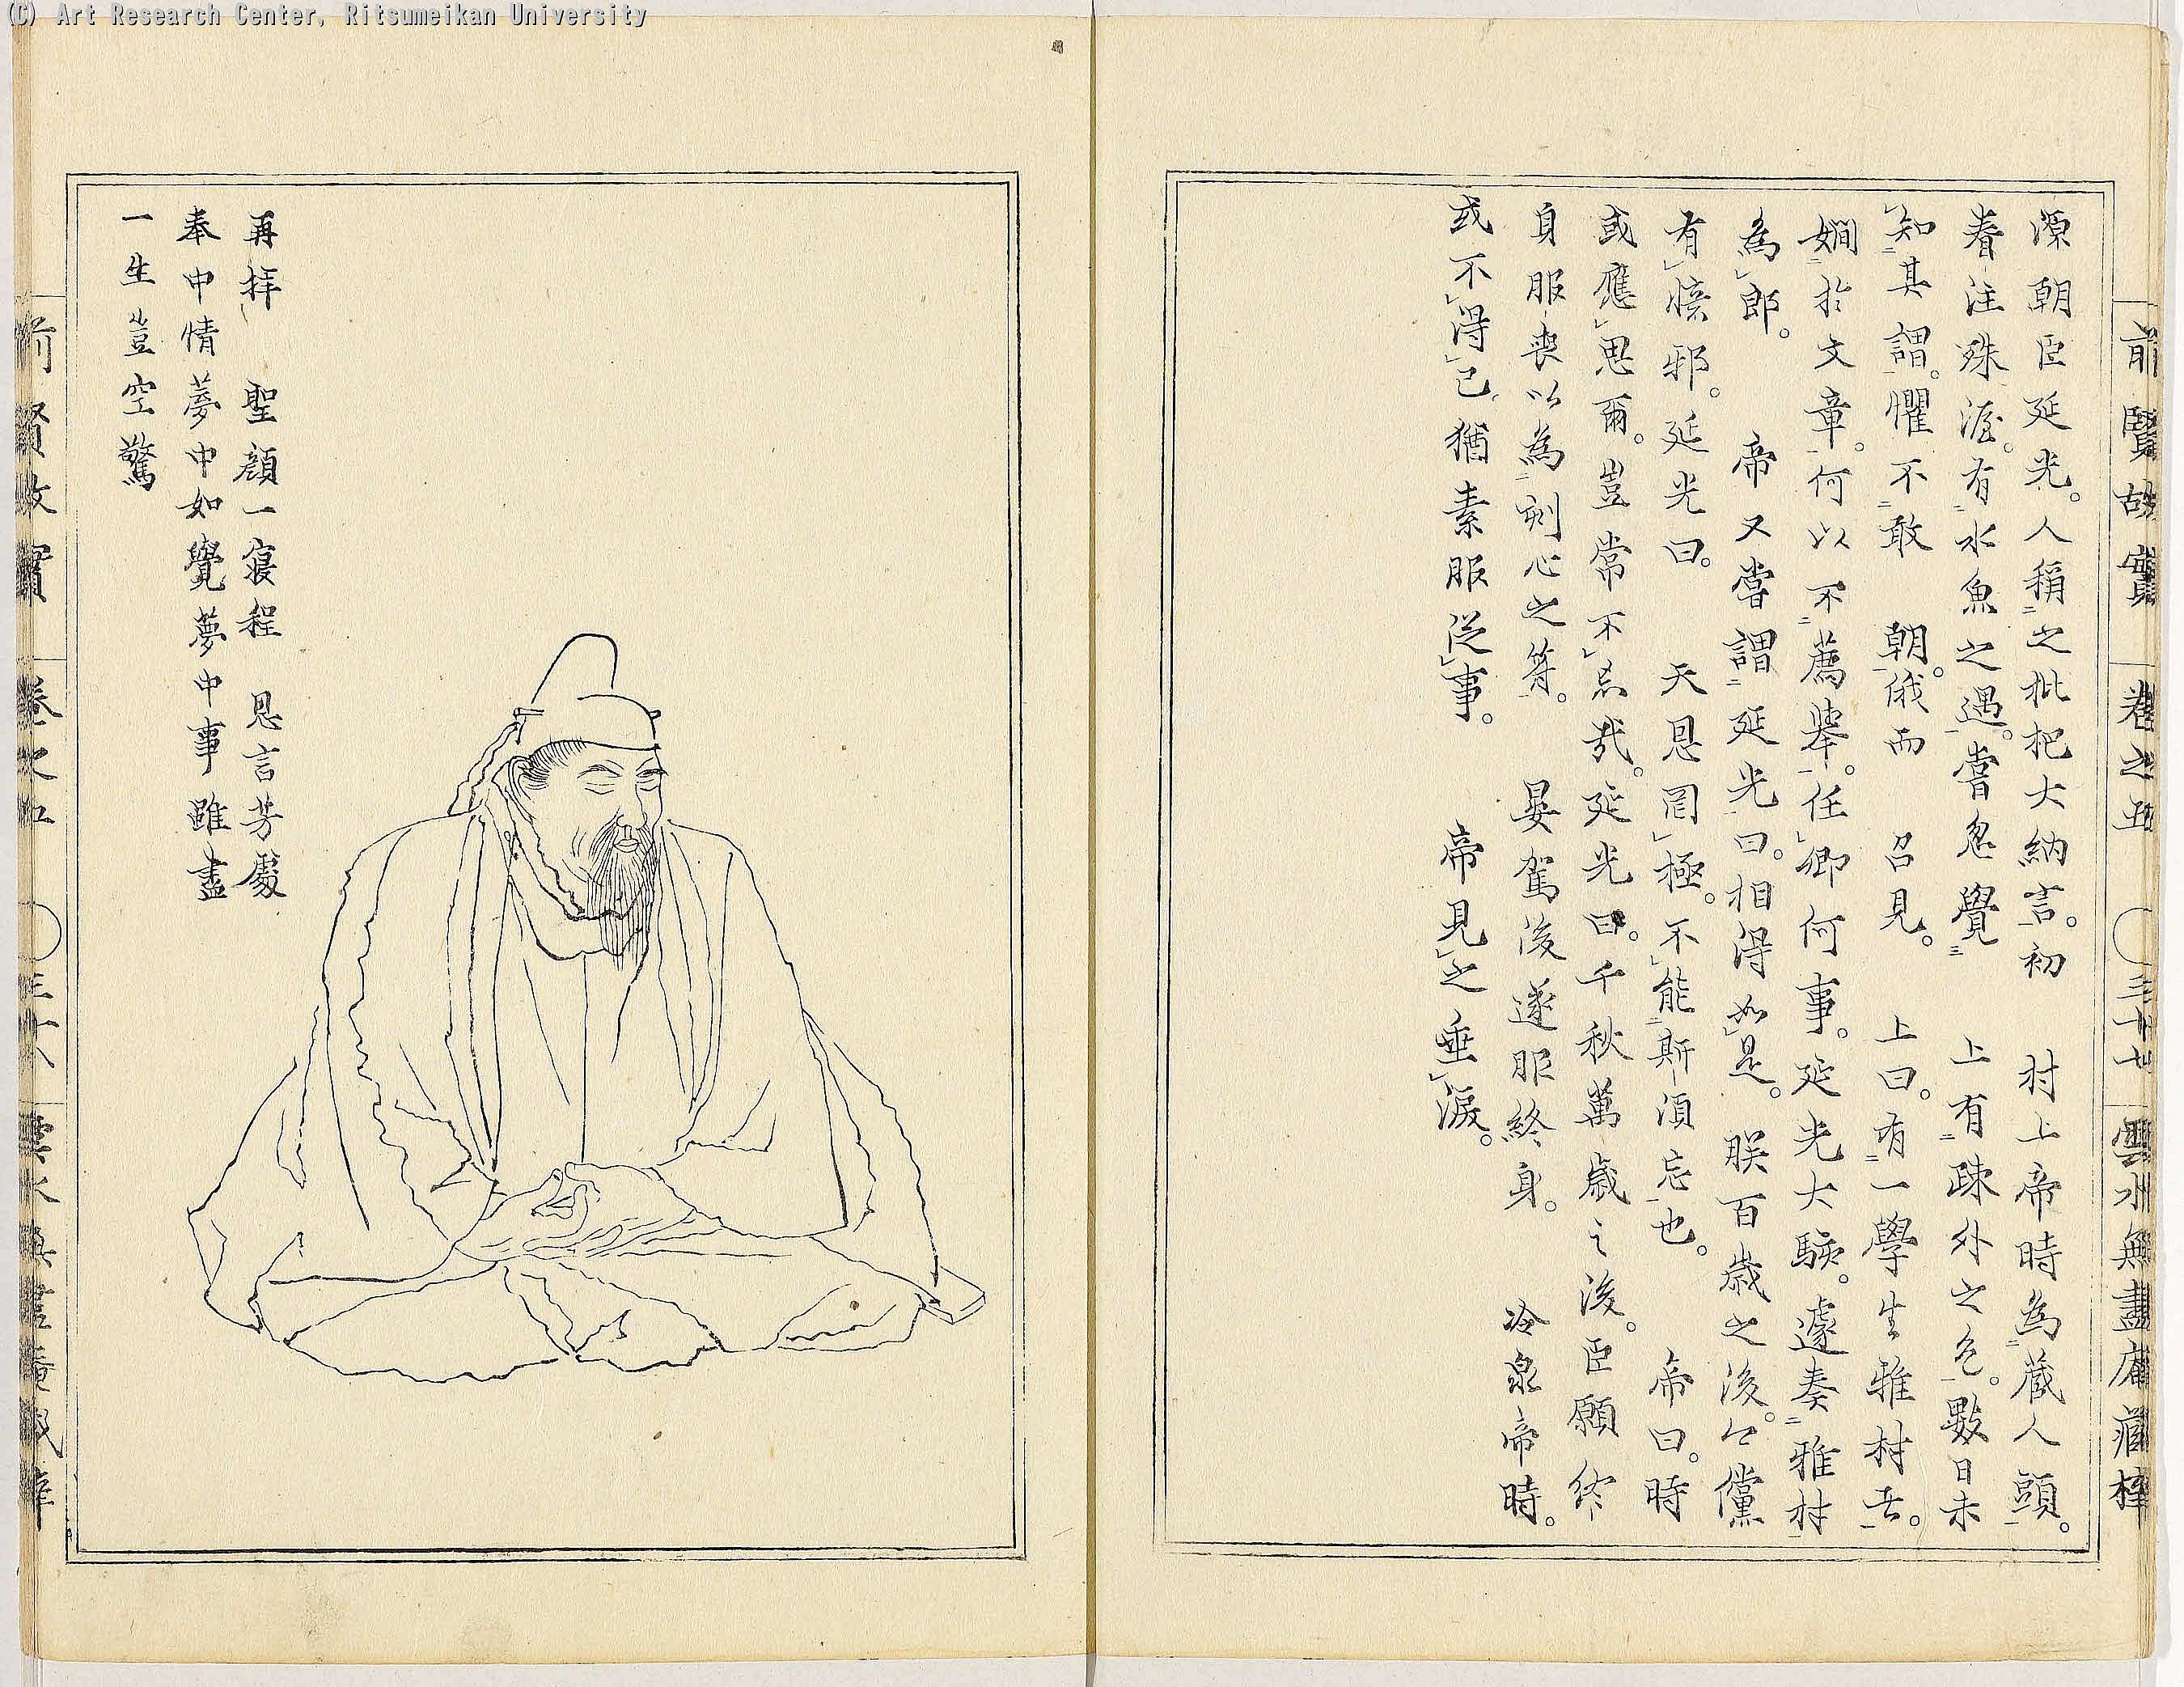 (C) Art Research Center, Ritsumeikan University
前賢故實 卷之五 〇三十七 雲水無盡庵藏梓
源朝臣延光。人稱之枇杷大納言。初 村上帝時為藏人頭。
眷注殊渥。有水魚之遇。嘗忽覺 上有疎外之色。數日未
知其謂。懼不敢 朝。俄而 召見。 上曰。有一學生雅材者。
嫺於文章。何以不薦擧。任卿何事。延光大駭。遽奏雅材
為郎。 帝又嘗謂延光曰。相得如是。 朕百歳之後。仁儻
有懐邪。延光曰。 天恩罔極。不能斯須忘也。 帝曰。時
或應思爾。豈常不忘哉。延光曰。千秋萬歳之後。臣願終
身服喪以為刻心之符。 晏駕後遂服終身。 冷泉帝時。
或不得已猶素服從事。 帝見之垂淚。
再拝 聖顔一寢程 恩言芳處
奉中情夢中如覺夢中事雖盡
一生豈空驚
前賢故實 卷之五 〇三十八 雲水無盡庵藏梓